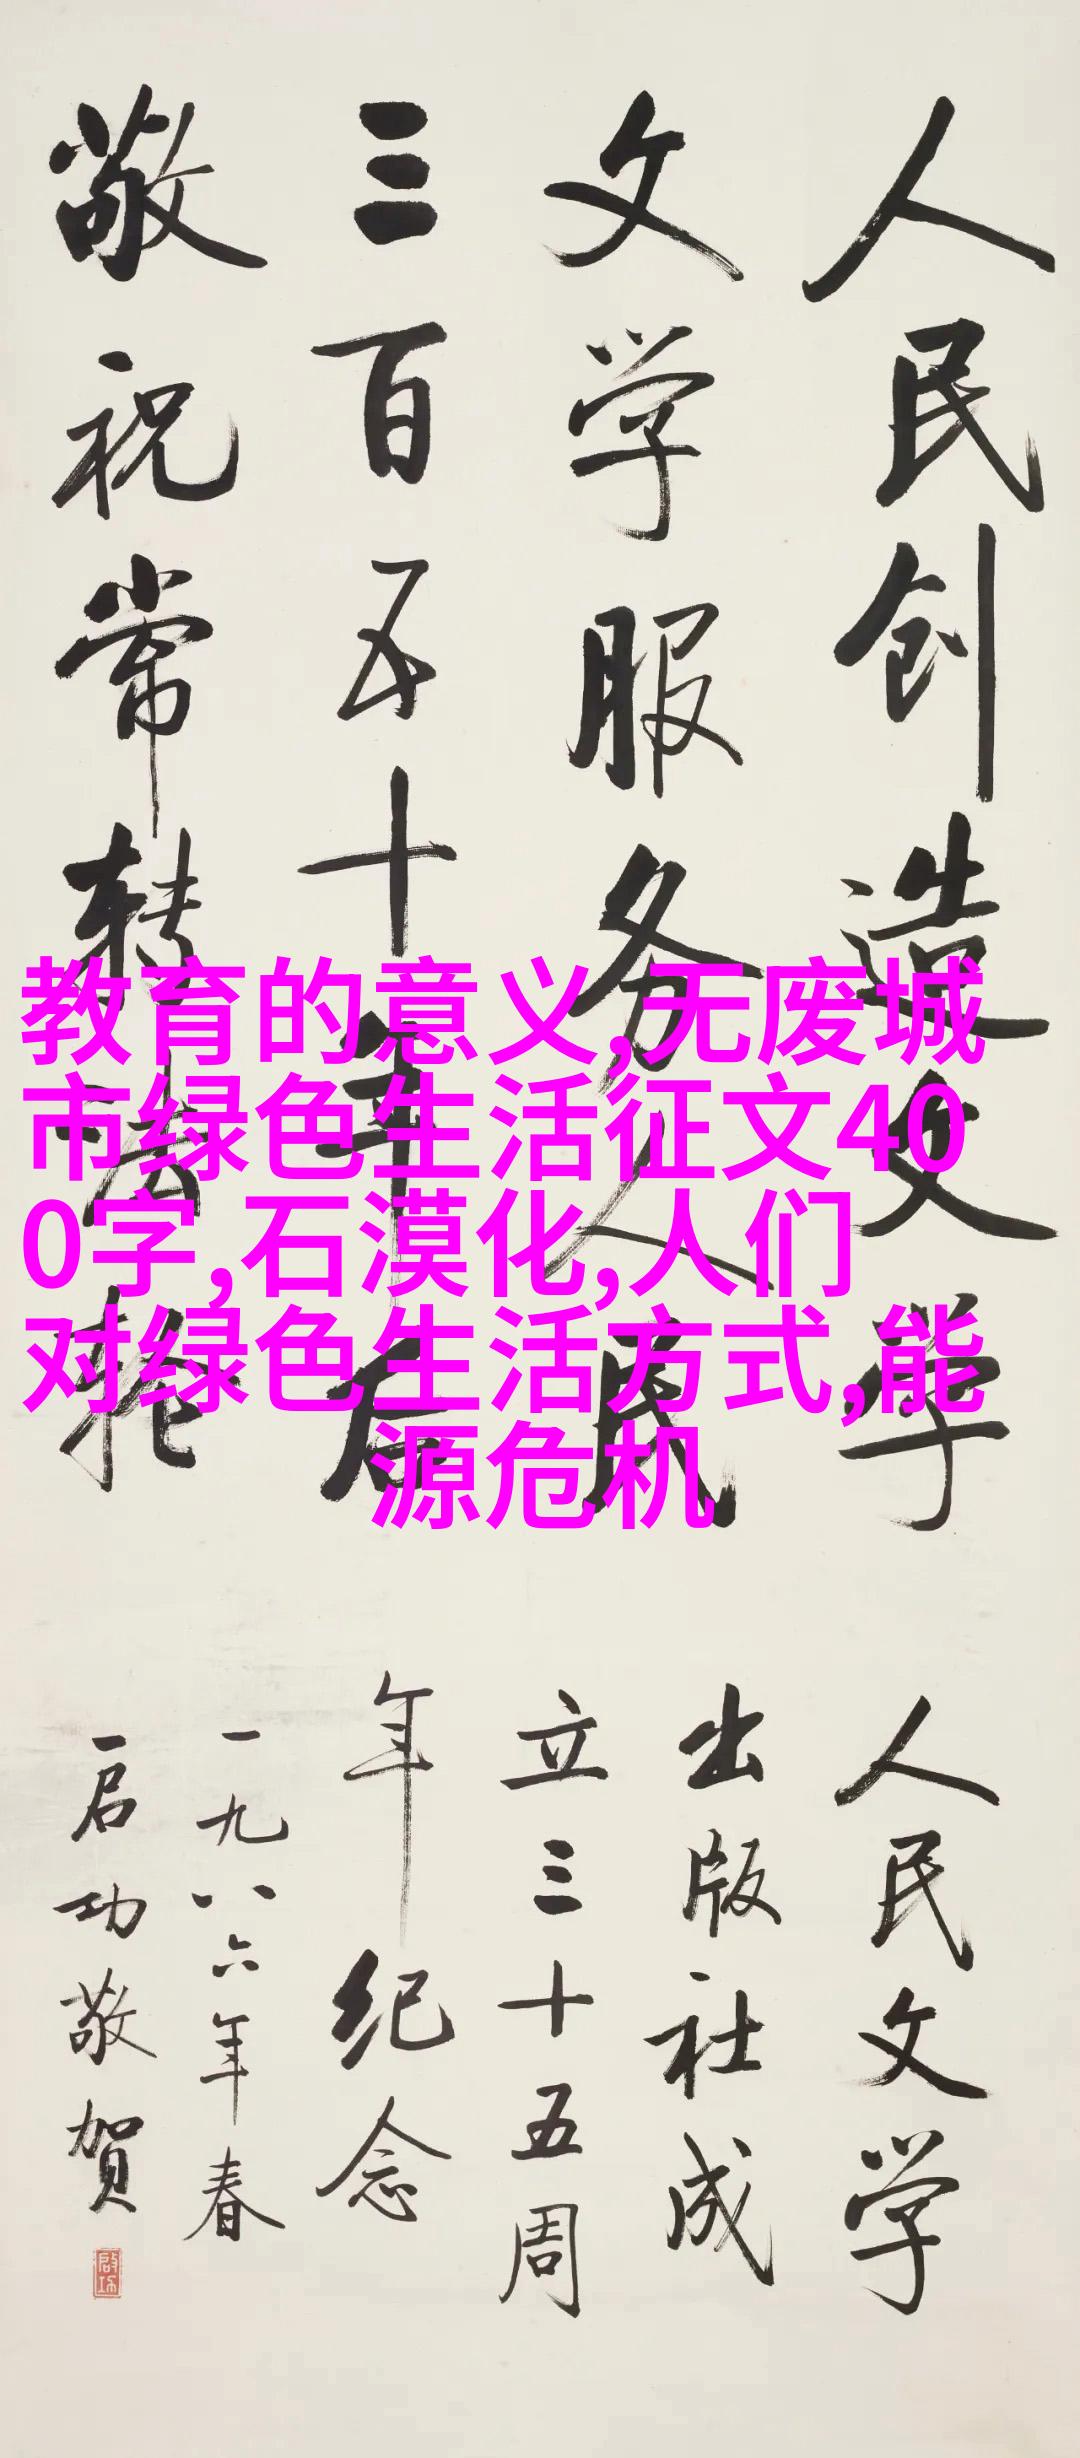 人民创造文学
文学服务人民
三百五十年后
敬祝常转法轮
人民文学
出版社成
立三十五周
年纪念
一九八六年春
启功敬贺
启功
教育的意义,无废城
市绿色生活征文40
0字,石漠化,人们
对绿色生活方式,能
源危机